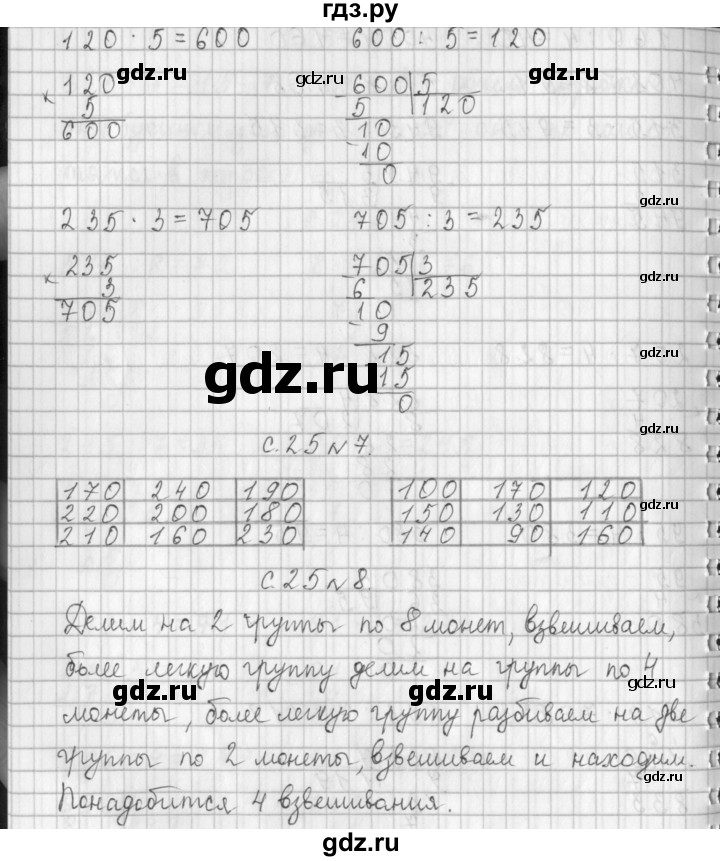 гдз.ру
120 · 5 = 600 600 : 5 = 120
gdz.ru gdz.ru
×120 5 600
-600|5 120
5
10
-10
0
gdz.ru
235 · 3 = 705 705 : 3 = 235
×235 3 705
-705|3 235
6
-10
9
-15
15
0
gdz.ru
gdz.ru
gdz.ru
с. 25 № 7.
170 240 190 100 170 120
220 200 180 150 130 110
210 160 230 140 90 160
gdz.ru
с. 25 № 8.
Делим на 2 группы по 8 монет, взвешиваем,
gdz.ru
более легкую группу делим на группы по 4
gdz.ru gdz.ru gdz.ru
монеты, более легкую группу разбиваем на две
группы по 2 монеты, взвешиваем и находим.
gdz.ru
Понадобится 4 взвешивания.
gdz.ru